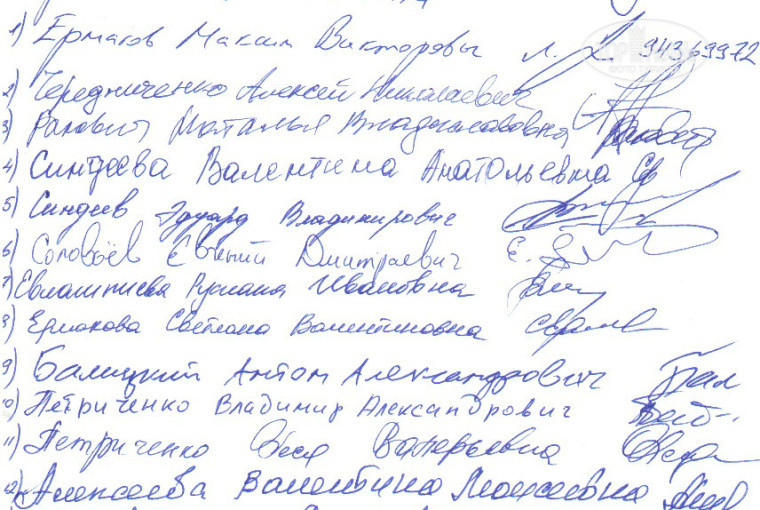 1) Ермаков Максим Викторовы 9436 9972
2) Чередниченко Алексей Николаевич
3) Ракович Наталья Владиславовна
4) Синдеева Валентина Анатольевна
5) Синдеев Эдуард Владимирович
6) Соловьёв Евгений Дмитриевич Е.
7) Руслана Ивановна
8) Ермакова Светлана Валентиновна
9) Балицкий Антон Александрович
10) Петриченко Владимир Александрович
11) Петриченко Валерьевна
12) Алексеева Валентина Моисеевна